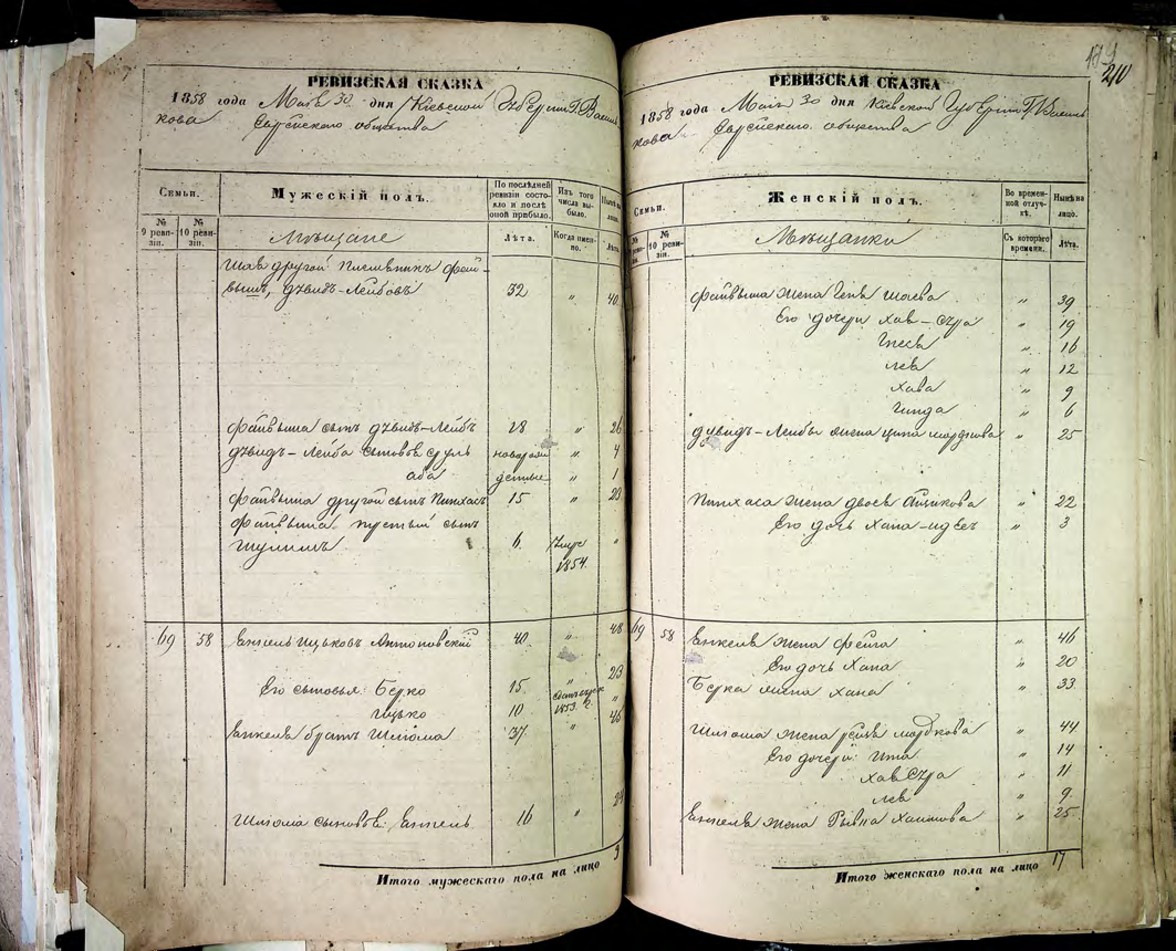 РЕВИЗСКАЯ СКАЗКА
1858 года Маія 30 дня Кіевской Губерніи Г. Василь
кова Еврейскаго общества
Семьи.
Мужескій полъ.
По послѣдней ревизіи состояло и послѣ оной прибыло.
Изъ того числа выбыло.
Нынѣ на лицо.
№ 9 ревизіи.
№ 10 ревизіи.
Мѣщане
Лѣта.
Когда именно.
Лѣта.
другой
Фай-
вышъ, Дувидъ-Лейбовъ 32 " 40
Файвыша сынъ Дувидъ-Лейбъ 18 " 26
Дувидъ-Лейба сыновья Сруль новорож " 4
Аба денные " 1
Файвыша другой сынъ Пинхасъ 15 " 23
Файвыша третый сынъ
Шулимъ 6 умре 1854 "
69 58 Янкель Ицьковъ Антоновскій 40 " 48
Его сыновья: Берко 15 " 23
Ицько 10 1853 "
Янкеля братъ Шлёма 37 " 45
Шлёма сыновья: Янкель 16 " 24
Итого мужескаго пола на лицо 9
210
РЕВИЗСКАЯ СКАЗКА
1858 года Маія 30 дня Кіевской Губерніи Г. Василь
кова Еврейскаго общества
Семьи.
Женскій полъ.
Во временной отлучкѣ.
Нынѣ на лицо.
№ 9 ревизіи.
№ 10 ревизіи.
Мѣщанки
Съ котораго времени.
Лѣта.
Файвыша жена Геня " 39
Его дочери Хая-Сура " 19
" 16
Лея " 12
Хава " 9
Гинда " 6
Дувидъ-Лейбы жена " 25
Пинхаса жена Двося Айзикова " 22
Его дочь Хана- " 3
69 58 Янкеля жена Фейга " 46
Его дочь Хана " 20
Берка жена Хана " 33
Шлёма жена Рейза Мордкова " 44
Его дочери: Ита " 14
Хая Сура " 11
Лея " 9
Янкеля жена Рывка Хаимова " 25
Итого женскаго пола на лицо 17